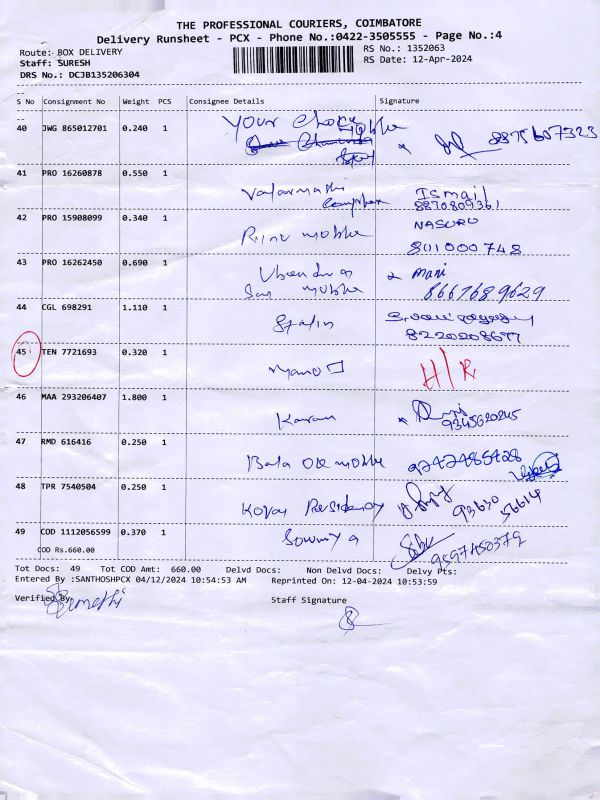 THE PROFESSIONAL COURIERS, COIMBATORE
Delivery Runsheet - PCX - Phone No.:0422-3505555 - Page No.:4
Route: BOX DELIVERY RS No.: 1352063
Staff: SURESH RS Date: 12-Apr-2024
DRS No.: DCJB135206304
S No Consignment No Weight PCS Consignee Details Signature
40 JWG 865012701 0.240 1 Your Choice Mobile 8875607323
41 PRO 16260878 0.550 1 Ismail
8870809361
42 PRO 15908099 0.340 1 Mobile NASURU
801000748
43 PRO 16262450 0.690 1 Mani
Sai Mobile 8667689629
44 CGL 698291 1.110 1 Stalin
8220208677
45 TEN 7721693 0.320 1 Mano H/R
46 MAA 293206407 1.800 1 Karan 9345620245
47 RMD 616416 0.250 1 Bala Mobile 9747485428
48 TPR 7540504 0.250 1 Kovai Residency 93630 56614
49 COD 1112056599 0.370 1 Sowmya 9597450372
COD Rs.660.00
Tot Docs: 49 Tot COD Amt: 660.00 Delvd Docs: Non Delvd Docs: Delvy Pts:
Entered By :SANTHOSHPCX 04/12/2024 10:54:53 AM Reprinted On: 12-04-2024 10:53:59
Verified By Staff Signature